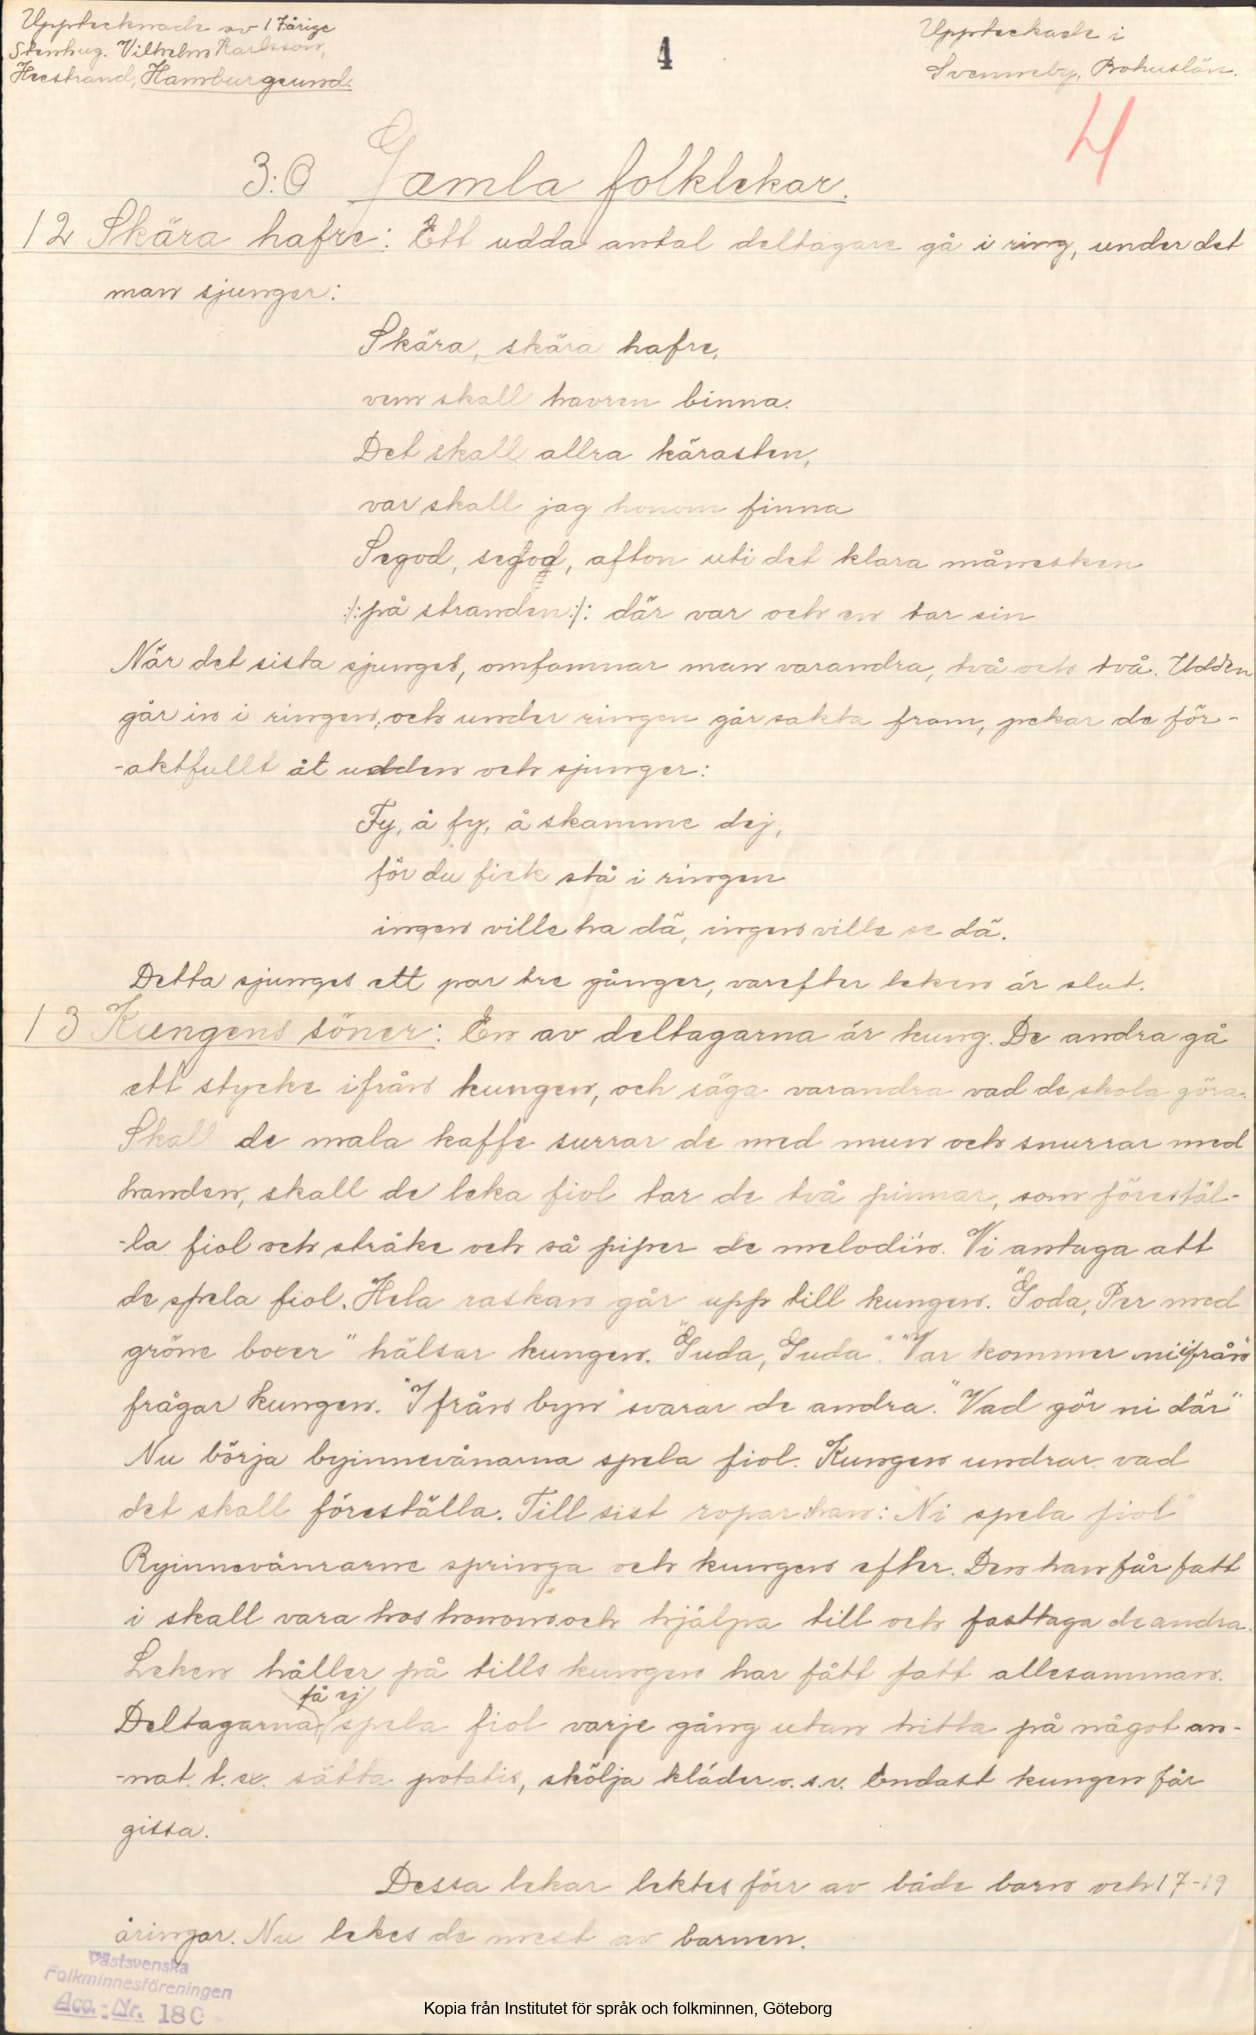 Upptecknade av 17årige
Stenhug. Vilhelm Karlsson,
Heestrand, Hamburgsund.
4
Uppteckade i
Svenneby, Bohuslän.
4
3:O Gamla folklekar.
12 Skära hafre: Ett udda antal deltagare gå i ring, under det
man sjunger:
Skära, skära hafre,
vem skall havren binna.
Det skall allra kärasten,
var skall jag honom finna
Segod, segod, afton uti det klara månesken
:/: på stranden :/: där var och en tar sin
När det sista sjunges, omfamnar man varandra, två och två. Udden
går in i ringen, och under ringen går sakta fram, pekar de för-
-aktfullt åt udden och sjunger:
Fy, å fy, å skamme dej,
för du fick stå i ringen
ingen ville ha dä, ingen ville se dä.
Detta sjunges ett par tre gånger, varefter leken är slut.
13 Kungens söner: En av deltagarna är kung. De andra gå
ett stycke ifrån kungen, och säga varandra vad de skola göra.
Skall de mala kaffe surrar de med mun och snurrar med
handen, skall de leka fiol tar de två pinnar, som förestäl-
-la fiol och stråke och så piper de melodin. Vi antaga att
de spela fiol. Hela raskan går upp till kungen. "Goda, Per med
gröne boxer" hälsar kungen. "Guda, Guda". "Var kommer ni ifrån"
frågar kungen. "Ifrån byn" svarar de andra. "Vad gör ni där"
Nu börja byinnevånarna spela fiol. Kungen undrar vad
det skall föreställa. Till sist ropar han: "Ni spela fiol"
Byinnevånrarne springa och kungen efter. Den han får fatt
i skall vara hos honom och hjälpa till och fasttaga de andra.
Leken håller på tills kungen har fått fatt allesamman.
få ej
Deltagarna spela fiol varje gång utan hitta på något an-
-nat t. ex. sätta potatis, skölja kläder o.s.v. Endast kungen får
gissa.
Dessa lekar lektes förr av både barn och 17-19
åringar. Nu lekes de mest av barnen.
Västsvenska
Folkminnesföreningen
Acc.-Nr. 180
Kopia från Institutet för språk och folkminnen, Göteborg